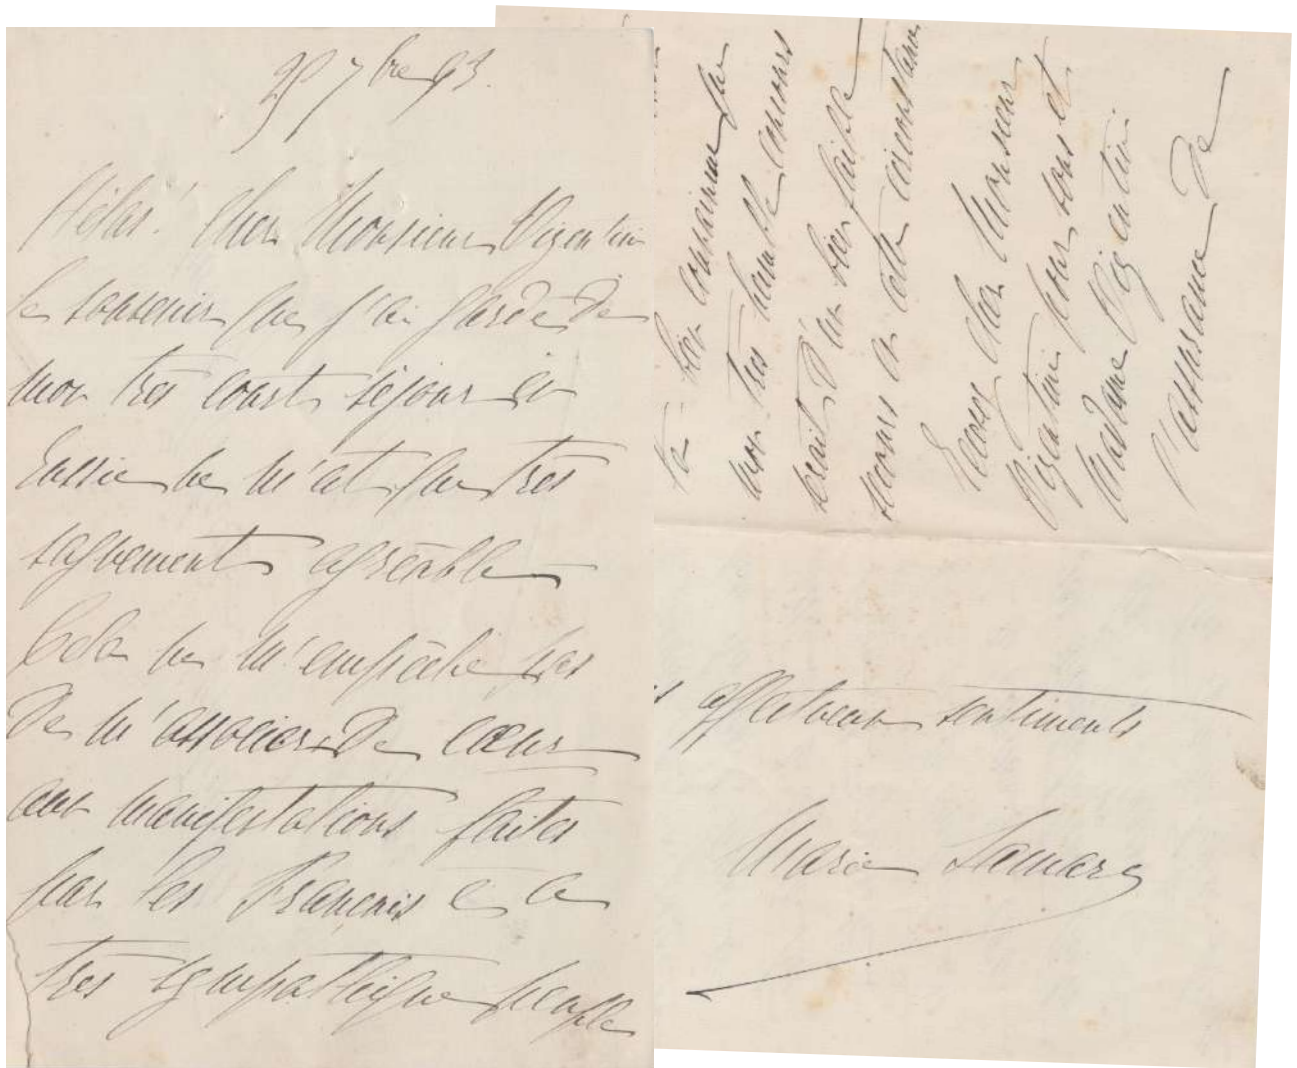 7bre 93.
Hélas! cher Monsieur Vizentini
le souvenir que j'ai gardé de
mon très court séjour en
Russie ne m'est que très
vaguement agréable
Cela ne m'empêche pas
de m'associer de cœur
aux manifestations faites
par les Français à ce
très sympathique peuple
bien convaincue que
mon très humble concours
serait d'un bien faible
secours en cette circonstance
Recevez cher Monsieur
Vizentini pour vous et
Madame Vizentini
l'assurance de
affectueux sentiments
Marie